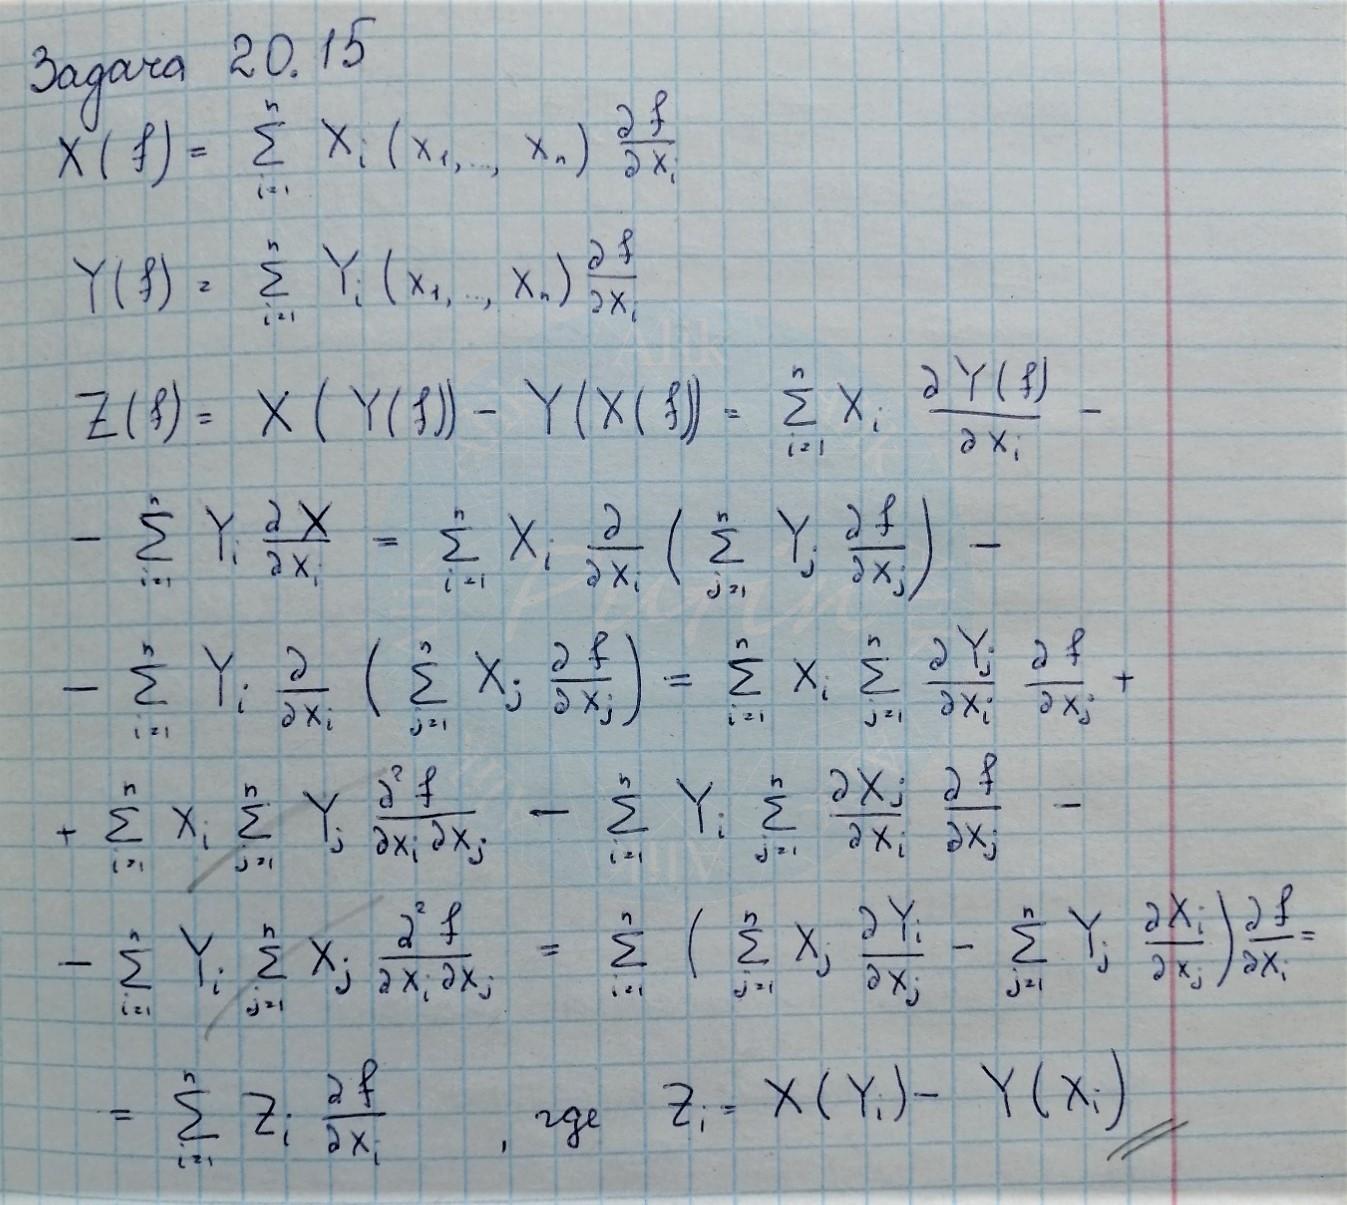 Задача 20.15
X(f) = ∑_{i=1}^{n} X_i (x_1, .., x_n) ∂f/∂x_i
Y(f) = ∑_{i=1}^{n} Y_i (x_1, .., x_n) ∂f/∂x_i
Z(f) = X(Y(f)) - Y(X(f)) = ∑_{i=1}^{n} X_i ∂Y(f)/∂x_i -
- ∑_{i=1}^{n} Y_i ∂X/∂x_i = ∑_{i=1}^{n} X_i ∂/∂x_i (∑_{j=1}^{n} Y_j ∂f/∂x_j) -
- ∑_{i=1}^{n} Y_i ∂/∂x_i (∑_{j=1}^{n} X_j ∂f/∂x_j) = ∑_{i=1}^{n} X_i ∑_{j=1}^{n} ∂Y_j/∂x_i ∂f/∂x_j +
+ ∑_{i=1}^{n} X_i ∑_{j=1}^{n} Y_j ∂²f/∂x_i ∂x_j - ∑_{i=1}^{n} Y_i ∑_{j=1}^{n} ∂X_j/∂x_i ∂f/∂x_j -
- ∑_{i=1}^{n} Y_i ∑_{j=1}^{n} X_j ∂²f/∂x_i ∂x_j = ∑_{i=1}^{n} (∑_{j=1}^{n} X_j ∂Y_i/∂x_j - ∑_{j=1}^{n} Y_j ∂X_i/∂x_j) ∂f/∂x_i =
= ∑_{i=1}^{n} Z_i ∂f/∂x_i , где Z_i = X(Y_i) - Y(X_i)